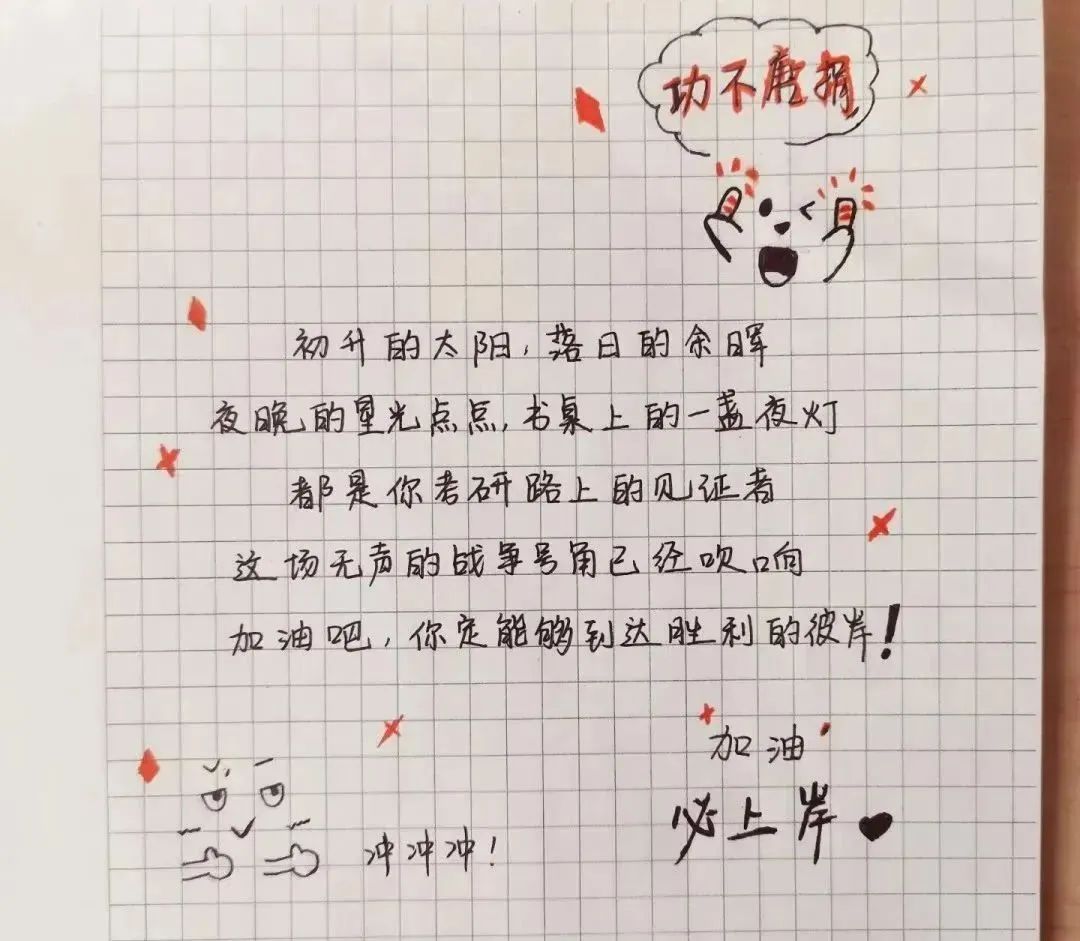 功不唐捐
初升的太阳，落日的余晖
夜晚的星光点点，书桌上的一盏夜灯
都是你考研路上的见证者
这场无声的战争号角已经吹响
加油吧，你定能够到达胜利的彼岸！
加油
必上岸
冲冲冲！